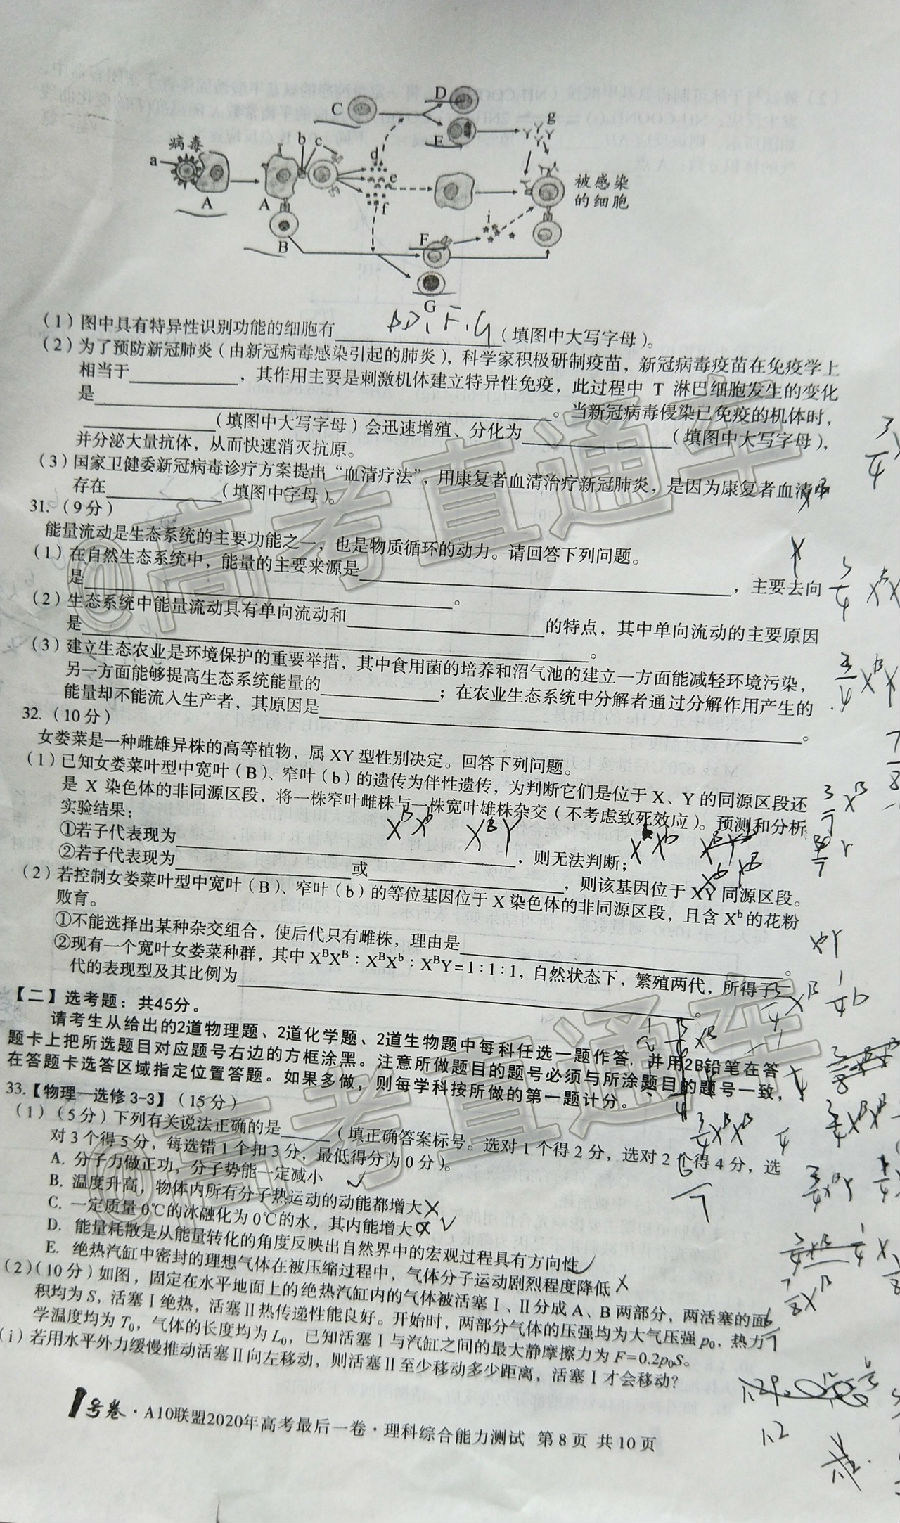 病毒
a
A
A
b
c
B
C
D
E
d
e
f
g
被感染
的细胞
F
i
G
(1)图中具有特异性识别功能的细胞有 BD、F、G (填图中大写字母)。
(2)为了预防新冠肺炎(由新冠病毒感染引起的肺炎),科学家积极研制疫苗,新冠病毒疫苗在免疫学上
相当于____,其作用主要是刺激机体建立特异性免疫,此过程中 T 淋巴细胞发生的变化
是____。当新冠病毒侵染已免疫的机体时,
____(填图中大写字母)会迅速增殖、分化为____(填图中大写字母),
并分泌大量抗体,从而快速消灭抗原。
(3)国家卫健委新冠病毒诊疗方案提出“血清疗法”,用康复者血清治疗新冠肺炎,是因为康复者血清中
存在____(填图中字母)。
31.(9分)
能量流动是生态系统的主要功能之一,也是物质循环的动力。请回答下列问题。
(1)在自然生态系统中,能量的主要来源是____,主要去向
是____。
(2)生态系统中能量流动具有单向流动和____的特点,其中单向流动的主要原因
是____。
(3)建立生态农业是环境保护的重要举措,其中食用菌的培养和沼气池的建立一方面能减轻环境污染,
另一方面能够提高生态系统能量的____;在农业生态系统中分解者通过分解作用产生的
能量却不能流入生产者,其原因是____。
32.(10分)
女娄菜是一种雌雄异株的高等植物,属XY型性别决定。回答下列问题。
(1)已知女娄菜叶型中宽叶(B)、窄叶(b)的遗传为伴性遗传,为判断它们是位于X、Y的同源区段还
是 X 染色体的非同源区段,将一株窄叶雌株与一株宽叶雄株杂交(不考虑致死效应)。预测和分析
实验结果:
①若子代表现为____,则无法判断;
②若子代表现为____或____,则该基因位于XY同源区段。
(2)若控制女娄菜叶型中宽叶(B)、窄叶(b)的等位基因位于X染色体的非同源区段,且含Xᵇ的花粉
败育。
①不能选择出某种杂交组合,使后代只有雌株,理由是____。
②现有一个宽叶女娄菜种群,其中XᴮXᴮ:XᴮXᵇ:XᴮY=1:1:1,自然状态下,繁殖两代,所得子
代的表现型及其比例为____。
【二】选考题:共45分。
请考生从给出的2道物理题、2道化学题、2道生物题中每科任选一题作答,并用2B铅笔在答
题卡上把所选题目对应题号右边的方框涂黑。注意所做题目的题号必须与所涂题目的题号一致,
在答题卡选答区域指定位置答题。如果多做,则每学科按所做的第一题计分。
33.【物理—选修3-3】(15分)
(1)(5分)下列有关说法正确的是____(填正确答案标号。选对1个得2分,选对2个得4分,选
对3个得5分,每选错1个扣3分,最低得分为0分)。
A. 分子力做正功,分子势能一定减小
B. 温度升高,物体内所有分子热运动的动能都增大
C. 一定质量0℃的冰融化为0℃的水,其内能增大
D. 能量耗散是从能量转化的角度反映出自然界中的宏观过程具有方向性
E. 绝热汽缸中密封的理想气体在被压缩过程中,气体分子运动剧烈程度降低
(2)(10分)如图,固定在水平地面上的绝热汽缸内的气体被活塞Ⅰ、Ⅱ分成A、B两部分,两活塞的面
积均为S,活塞Ⅰ绝热,活塞Ⅱ热传递性能良好。开始时,两部分气体的压强均为大气压强p₀,热力
学温度均为T₀,气体的长度均为L₀,已知活塞Ⅰ与汽缸之间的最大静摩擦力为F=0.2p₀S。
(ⅰ)若用水平外力缓慢推动活塞Ⅱ向左移动,则活塞Ⅱ至少移动多少距离,活塞Ⅰ才会移动?
1号卷·A10联盟2020年高考最后一卷·理科综合能力测试 第8页 共10页
@高考直通车
@高考直通车